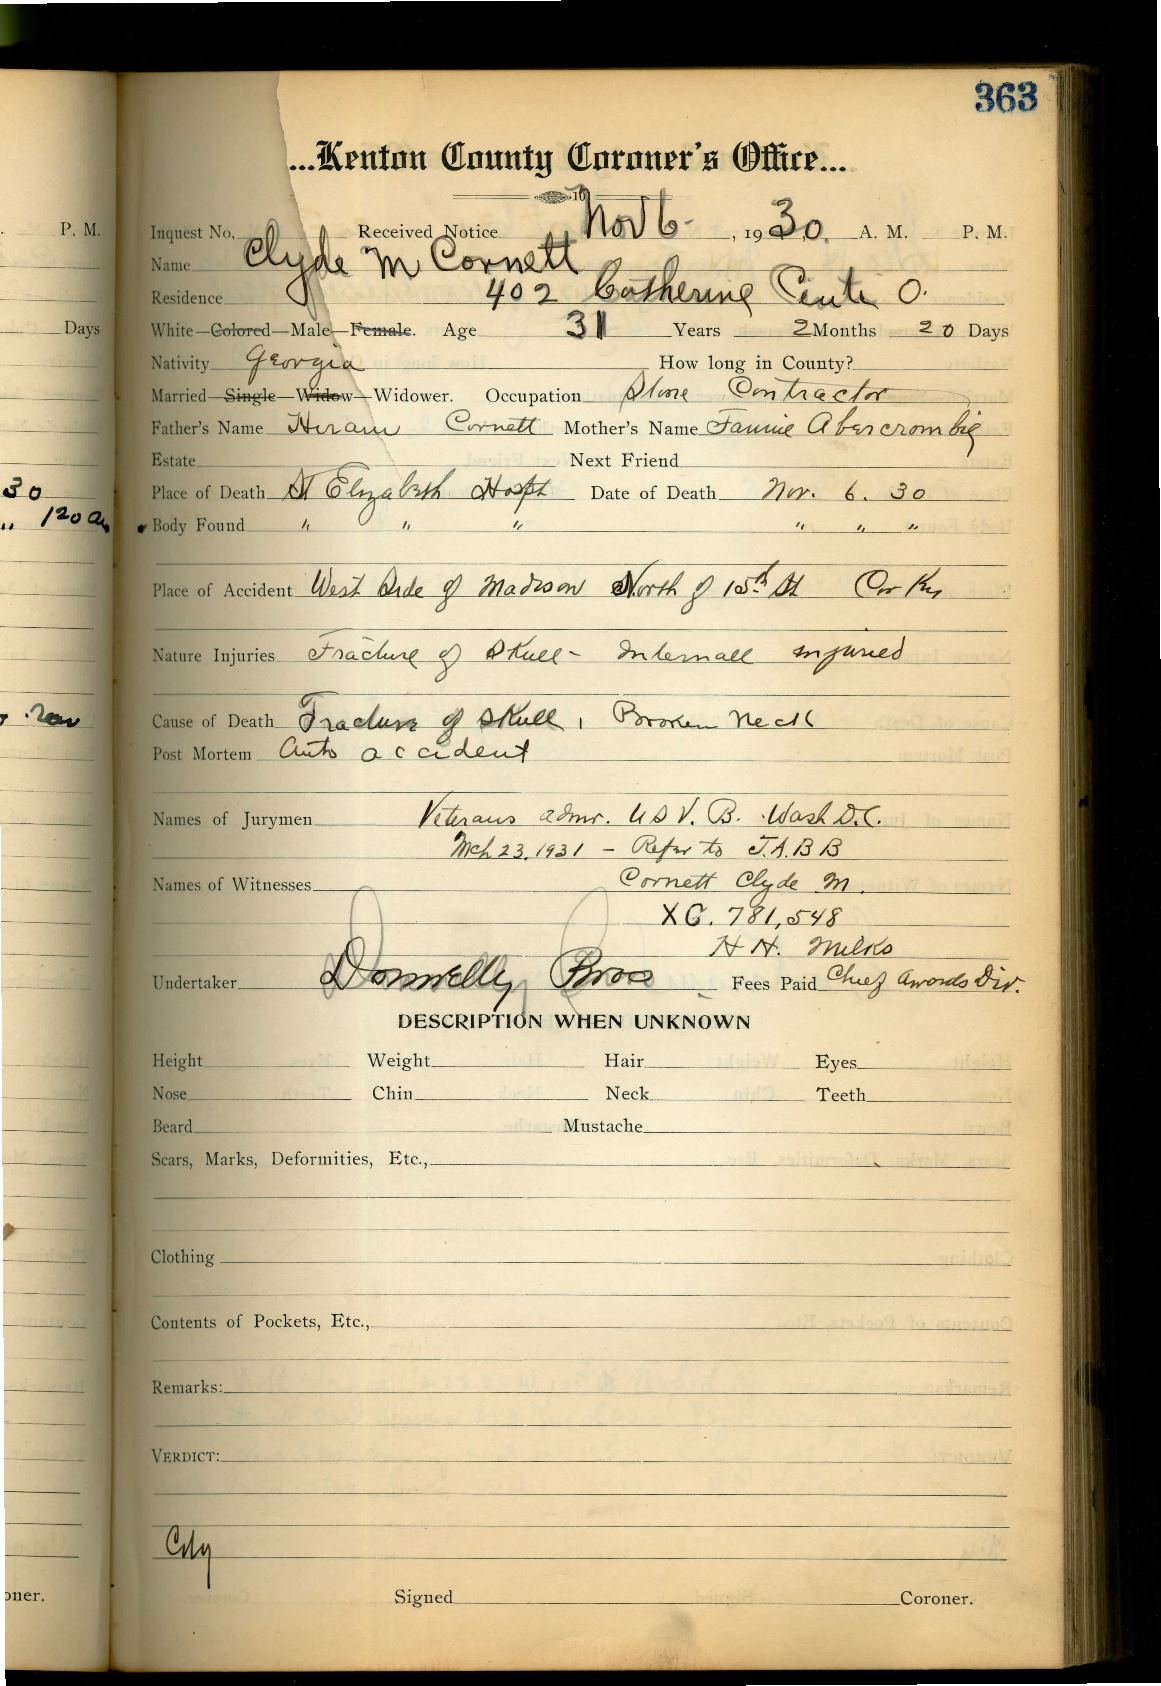 363
...Kenton County Coroner's Office...
Inquest No. Received Notice Nov 6- , 1930. A. M. P. M.
Name Clyde M Cornett
Residence 402 Catherine Cinti O.
White—Colored—Male—Female. Age 31 Years 2 Months 20 Days
Nativity Georgia How long in County?
Married—Single—Widow—Widower. Occupation Stone Contractor
Father's Name Hiram Cornett Mother's Name Fannie Abercrombie
Estate Next Friend
Place of Death St Elizabeth Hospt Date of Death Nov. 6. 30
Body Found " " " " " "
Place of Accident West Side of Madison North of 15th St Cov Ky
Nature Injuries Fracture of Skull - Internall injuried
Cause of Death Fracture of Skull, Broken Neck
Post Mortem Auto accident
Names of Jurymen Veterans admr. U S V. B. Wash D.C.
Mch 23, 1931 - Refer to J.A.B B
Names of Witnesses Cornett Clyde M.
XC. 781,548
H H. Milks
Undertaker Donnelly Bros Fees Paid Chief Awards Div.
DESCRIPTION WHEN UNKNOWN
Height Weight Hair Eyes
Nose Chin Neck Teeth
Beard Mustache
Scars, Marks, Deformities, Etc.,
Clothing
Contents of Pockets, Etc.,
Remarks:
VERDICT:
City
Signed Coroner.
P. M.
Days
30
" 120 a
oner.